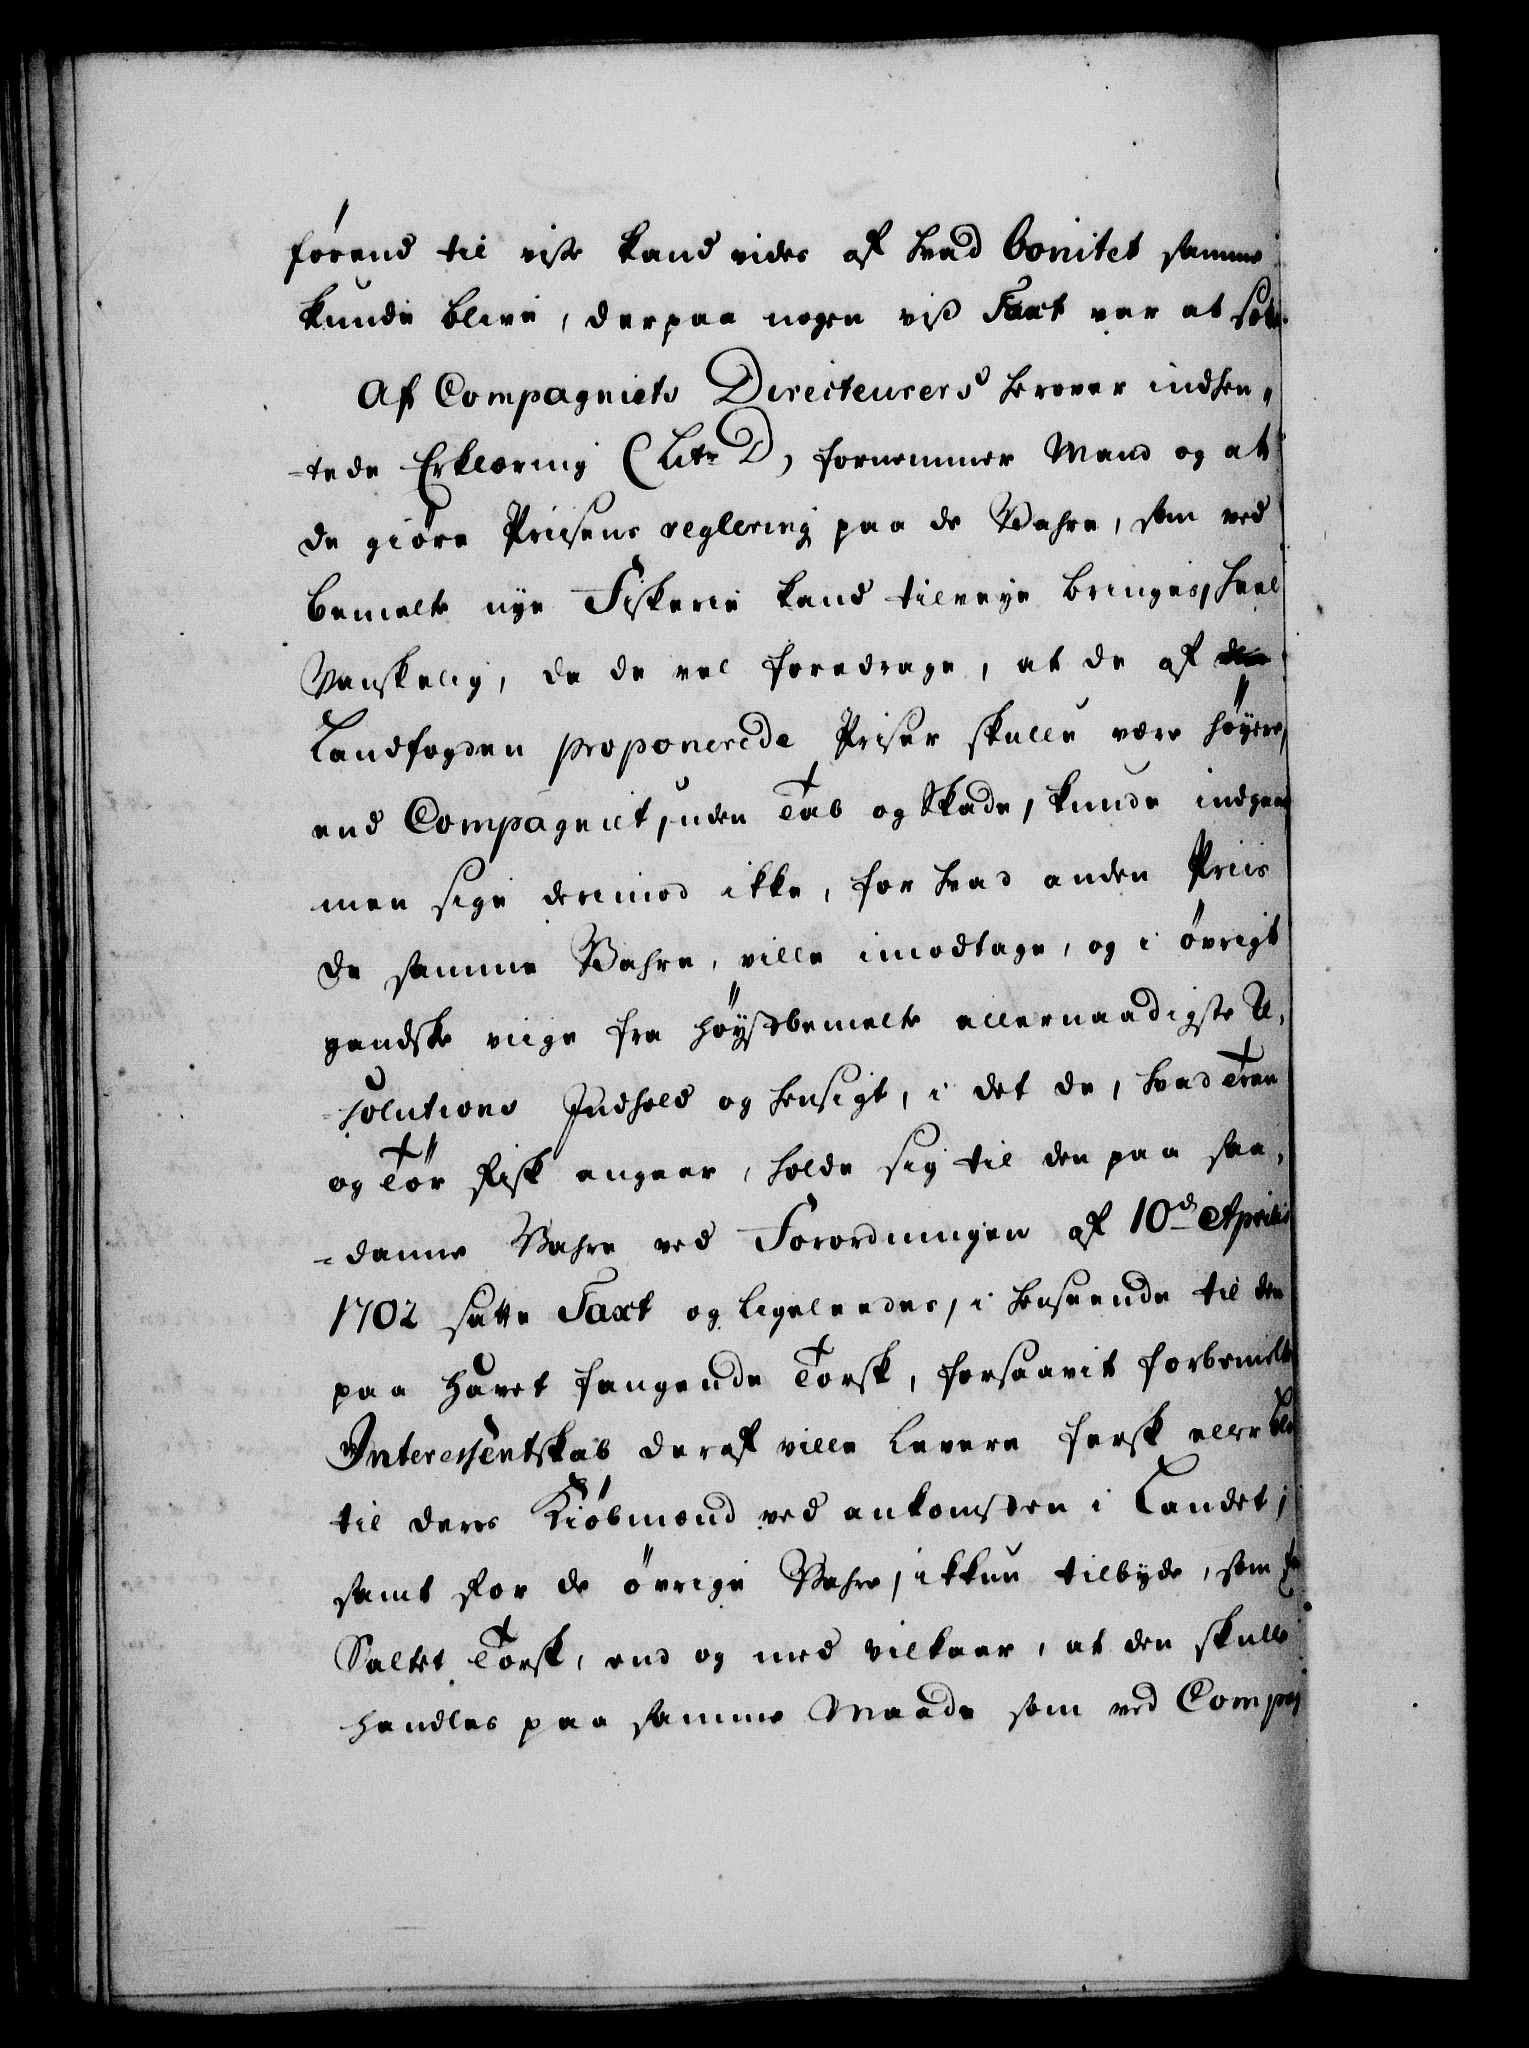 førend til visse kand vides af hvad bonitet samme
kunde blive, derpaa nogen viss Taxt var at sette.
Af Compagniets Directeurers herover indhen„
-tede Erklæring (Litr D, fornemmer Mand og at
de giöre Priisens reglering paa de Vahre, som ved
bemelte nye Fiskerie kand tilveye bringes, heel
Vanskelig, da de vel foredrage, at de af
Landfogden proponerede Priser skulle være høyere,
end Compagniet, uden Tab og Skade, kunde indgaae
men sige derimod ikke, for hvad anden Priis
de samme Vahre, ville imodtage, og i øvrigt
gandske viige fra höystbemelte allernaadigste Re,
-solutions Indhold og hensigt, i det de, hvad Tran
og Tör Fisk angaar, holde sig til den paa saa,
-danne Vahre ved Forordningen af 10de Aprilis
1702 satte Taxt og ligeleedes, i henseende til den
paa Havet fangende Torsk, forsaavit forbemelte
Interessentskab deraf ville levere fersk eller
til deres Kiöbmænd ved ankomsten i Landet,
samt for de övrige Vahre, ikkun tilbyde, som for
Saltet Torsk, end og med vilkaar, at den skulle
handles paa samme Maade som ved Compag